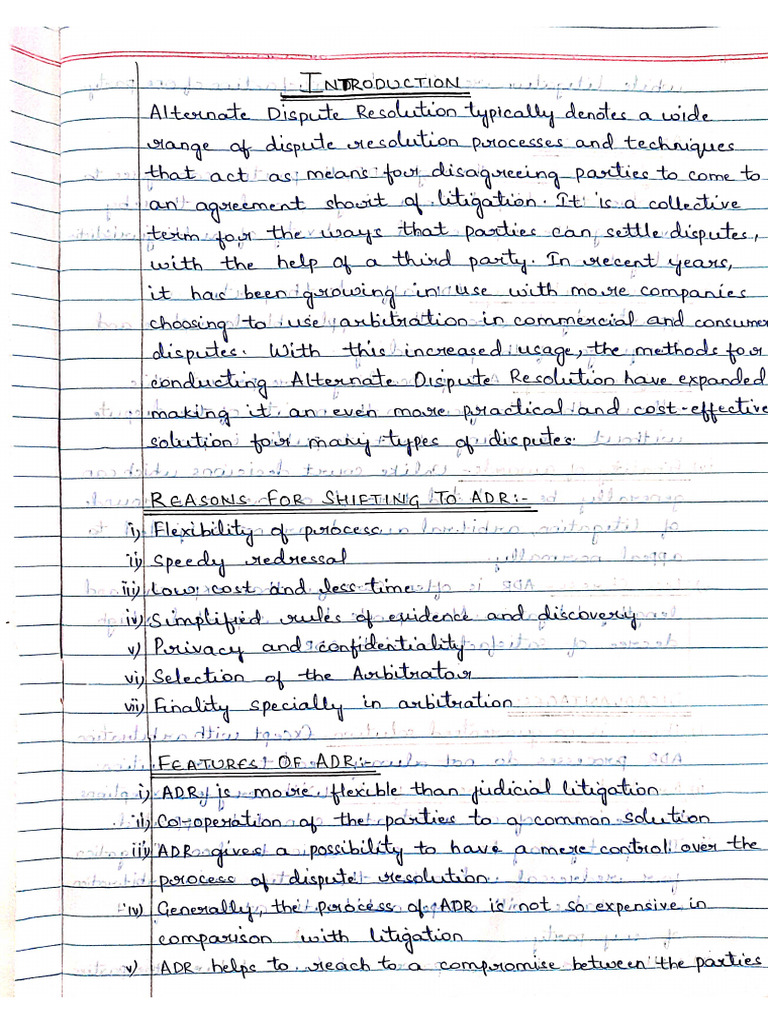 INTRODUCTION
Alternate Dispute Resolution typically denotes a wide
range of dispute resolution processes and techniques
that act as means for disagreeing parties to come to
an agreement short of litigation. It is a collective
term for the ways that parties can settle disputes,
with the help of a third party. In recent years,
it has been growing in use with more companies
choosing to use arbitration in commercial and consumer
disputes. With this increased usage, the methods for
conducting Alternate Dispute Resolution have expanded
making it an even more practical and cost-effective
solution for many types of disputes.
REASONS FOR SHIFTING TO ADR:-
i) Flexibility of process
ii) Speedy redressal
iii) Low cost and less time
iv) Simplified rules of evidence and discovery
v) Privacy and confidentiality
vi) Selection of the Arbitrator
vii) Finality specially in arbitration
FEATURES OF ADR:-
i) ADR is more flexible than judicial litigation
ii) Co-operation of the parties to a common solution
iii) ADR gives a possibility to have a mere control over the
process of dispute resolution
iv) Generally, the process of ADR is not so expensive in
comparison with litigation
v) ADR helps to reach to a compromise between the parties